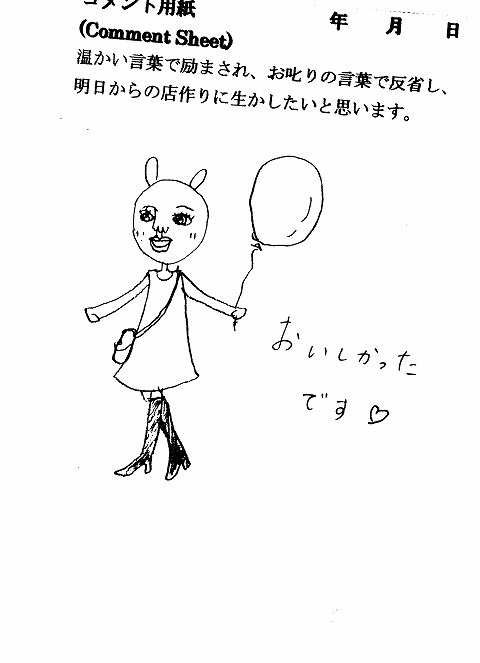 コメント用紙
年 月 日
(Comment Sheet)
温かい言葉で励まされ、お叱りの言葉で反省し、
明日からの店作りに生かしたいと思います。
おいしかった
です♡